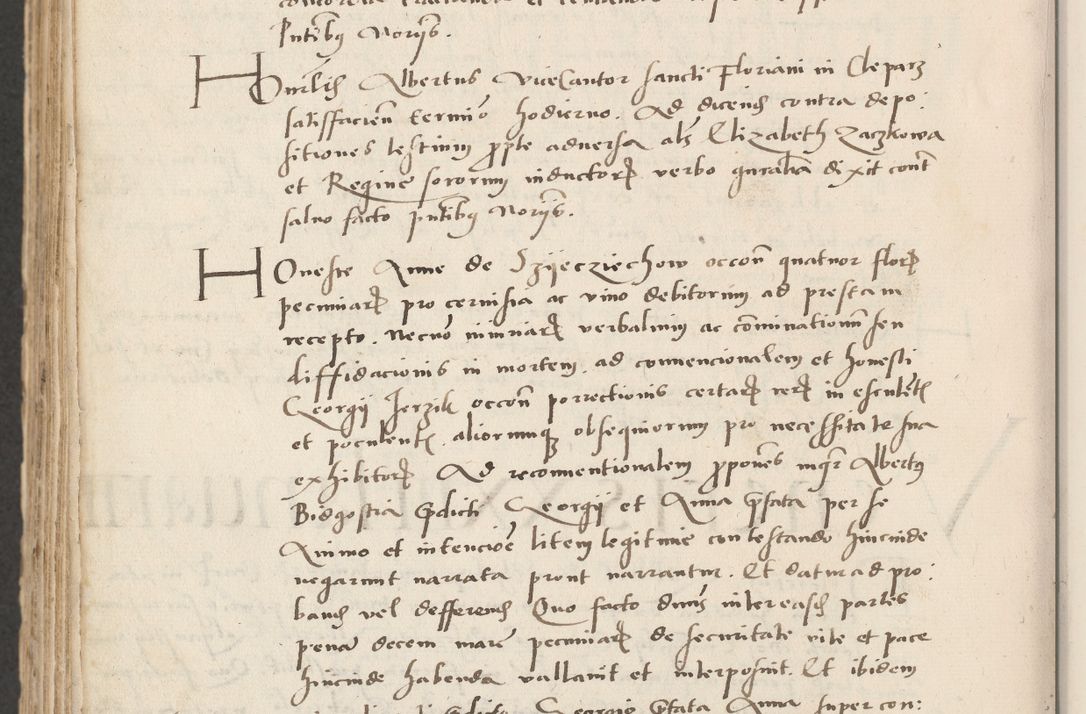 pntibus Norijs.
Honrlis Albertus Vicecantor sancti Floriani in Cleparz
satisfacien termio hodierno. Ad dicend contra depo:
sitiones testium pro pte adversa als Elizabeth Zaczkowa
et Regine sororum inductor verbo gnralia dixit cont
salvo facto pntibus Norijs.
Honeste Anne de Szijecziechow occon quatuor flor
pecuniar pro cervisia ac vino debitorum ad prestam
recepto. Necno iniuriar verbalium ac cominationum seu
diffidacionis in mortem. ad convencionalem et honesti
Georgij Jerzik occon porrectionis certar rer in esculent
et poculent. aliorumque obsequiorum pro necessitate sua
exhibitor Ad reconventionalem propones mgr Albertus
Bidgostia predicti Georgij et Anna prefata per se
Animo et intencioe litem legitime contestando hincinde
negarunt narrata prout narrantur. Et datur ad pro:
band vel defferend Quo facto dnus intereasd partes
pena decem marc pecuniar de securitate vite et pace
hincinde habenda vallavit et interposuit. Et ibidem
Georgio prefata Anna super con: